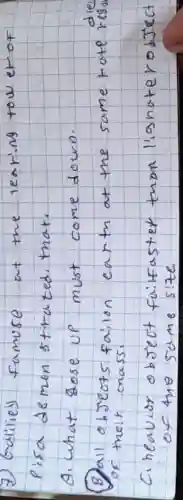 7) Galilies famuse at the learing tower of
Pisa demonstrated that.
A. what gose up must come down.
B all objects failon earth at the same rate
of their mass.
C. heavior object failfaster than lianoter object
of the same size